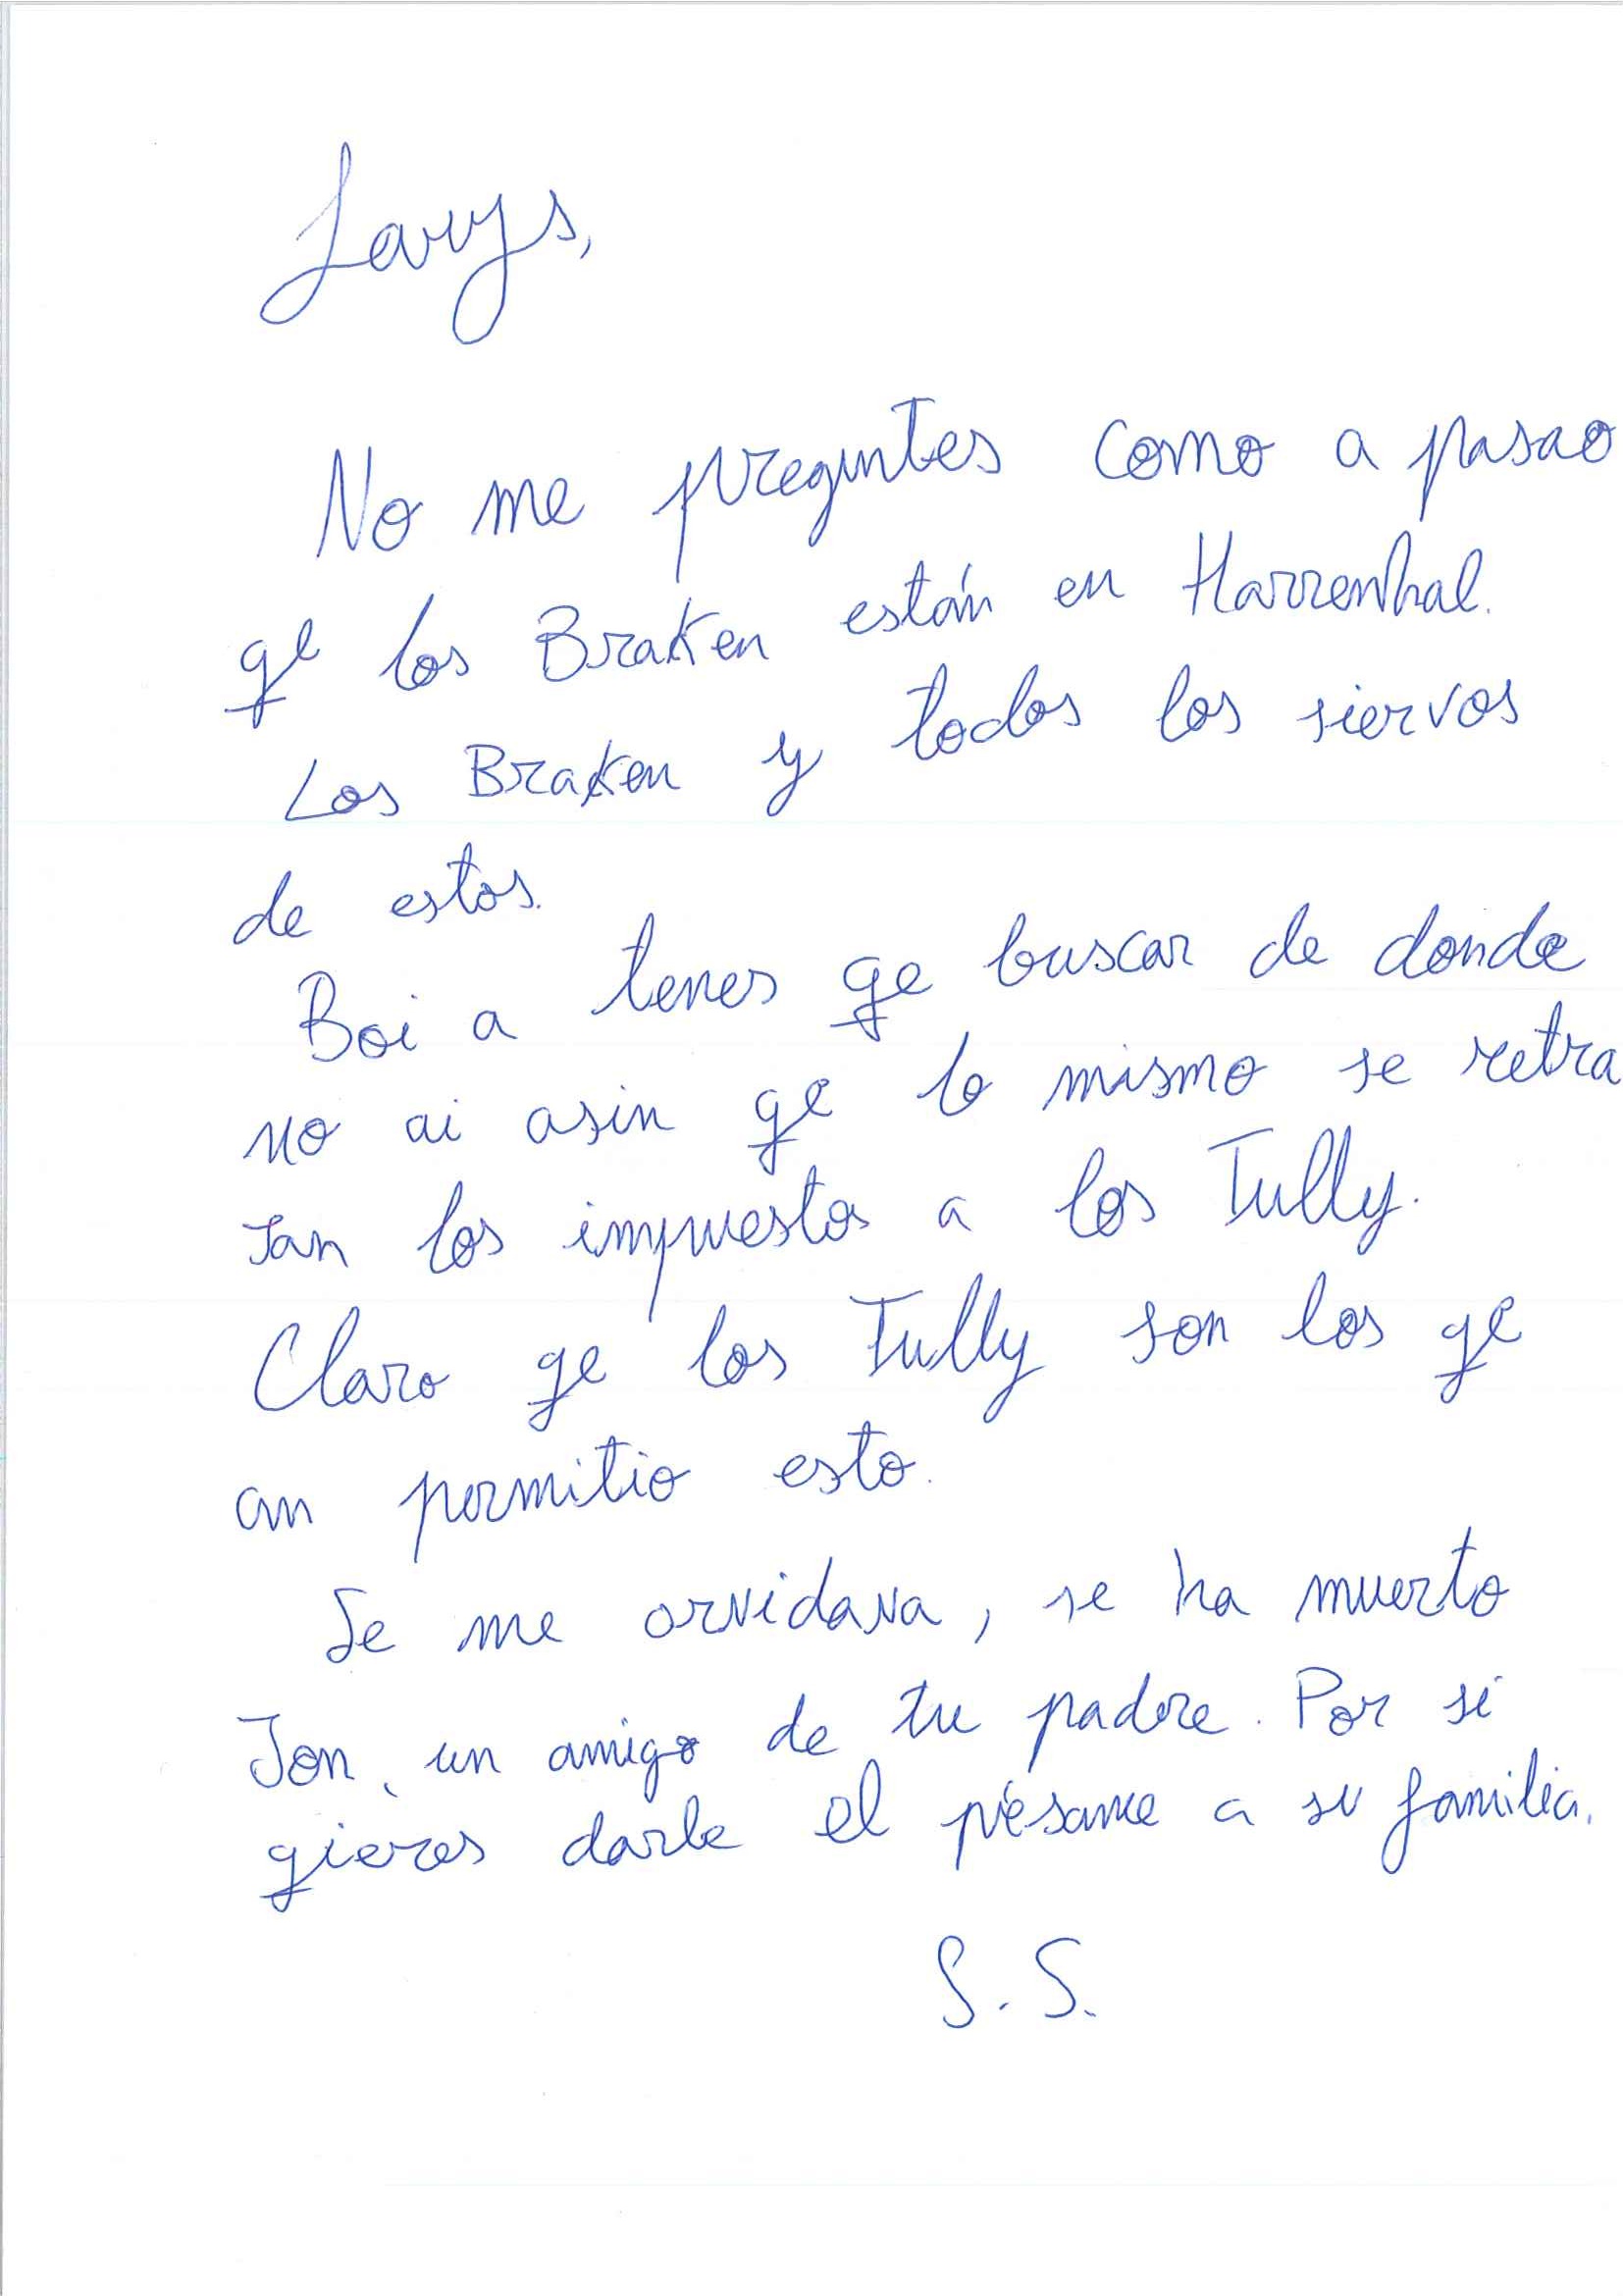 Larys,
No me preguntes como a pasao
qe los Braken están en Harrenhal.
Los Braken y todos los siervos
de estos.
Boi a tener qe buscar de donde
no ai asin qe lo mismo se retra
san los impuestos a los Tully.
Claro qe los Tully son los qe
an permitio esto.
Se me orvidava, se ha muerto
Jon, un amigo de tu padre. Por si
qieres darle el pésame a su familia.
S.S.